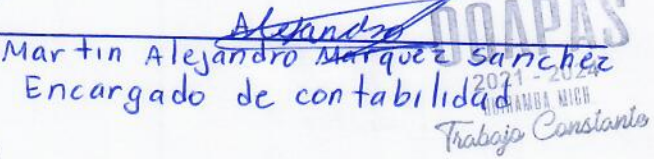 Alejandro
OOAPAS
Martin Alejandro Marquez Sanchez
2021 - 2024
Encargado de contabilidad
HUIRAMBA MICH
Trabajo Constante